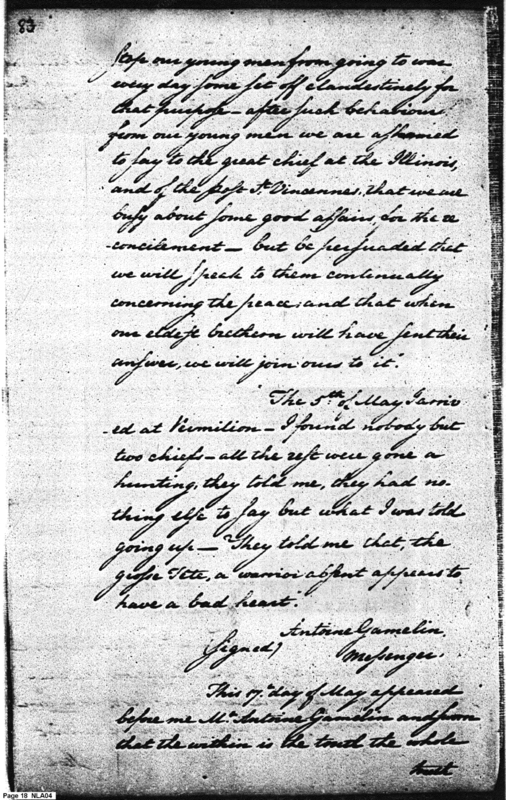 83
Stop our young men from going to war
every day some set off clandestinely for
that purpose – after such behaviour
from our young men we are ashamed
to say to the great chief at the Illinois,
and of the post St. Vincennes, that we are
busy about some good affairs, for the re
-concilement – but be persuaded that
we will speak to them continually
concerning the peace; and that when
our eldest brethern will have sent their
answer, we will join ours to it."
The 5th of May I arriv
-ed at Vermilion – I found nobody but
two chiefs – all the rest were gone a
hunting, they told me, they had no-
thing else to say but what I was told
going up – "They told me that, the
grosse Tete, a warrior absent appears to
have a bad heart."
Antoine Gamelin
(Signed) Messenger.
This 17. day of May appeared
before me Mr. Antoine Gamelin and sworn
that the within is the truth the whole
truth
Page 18 NLA04